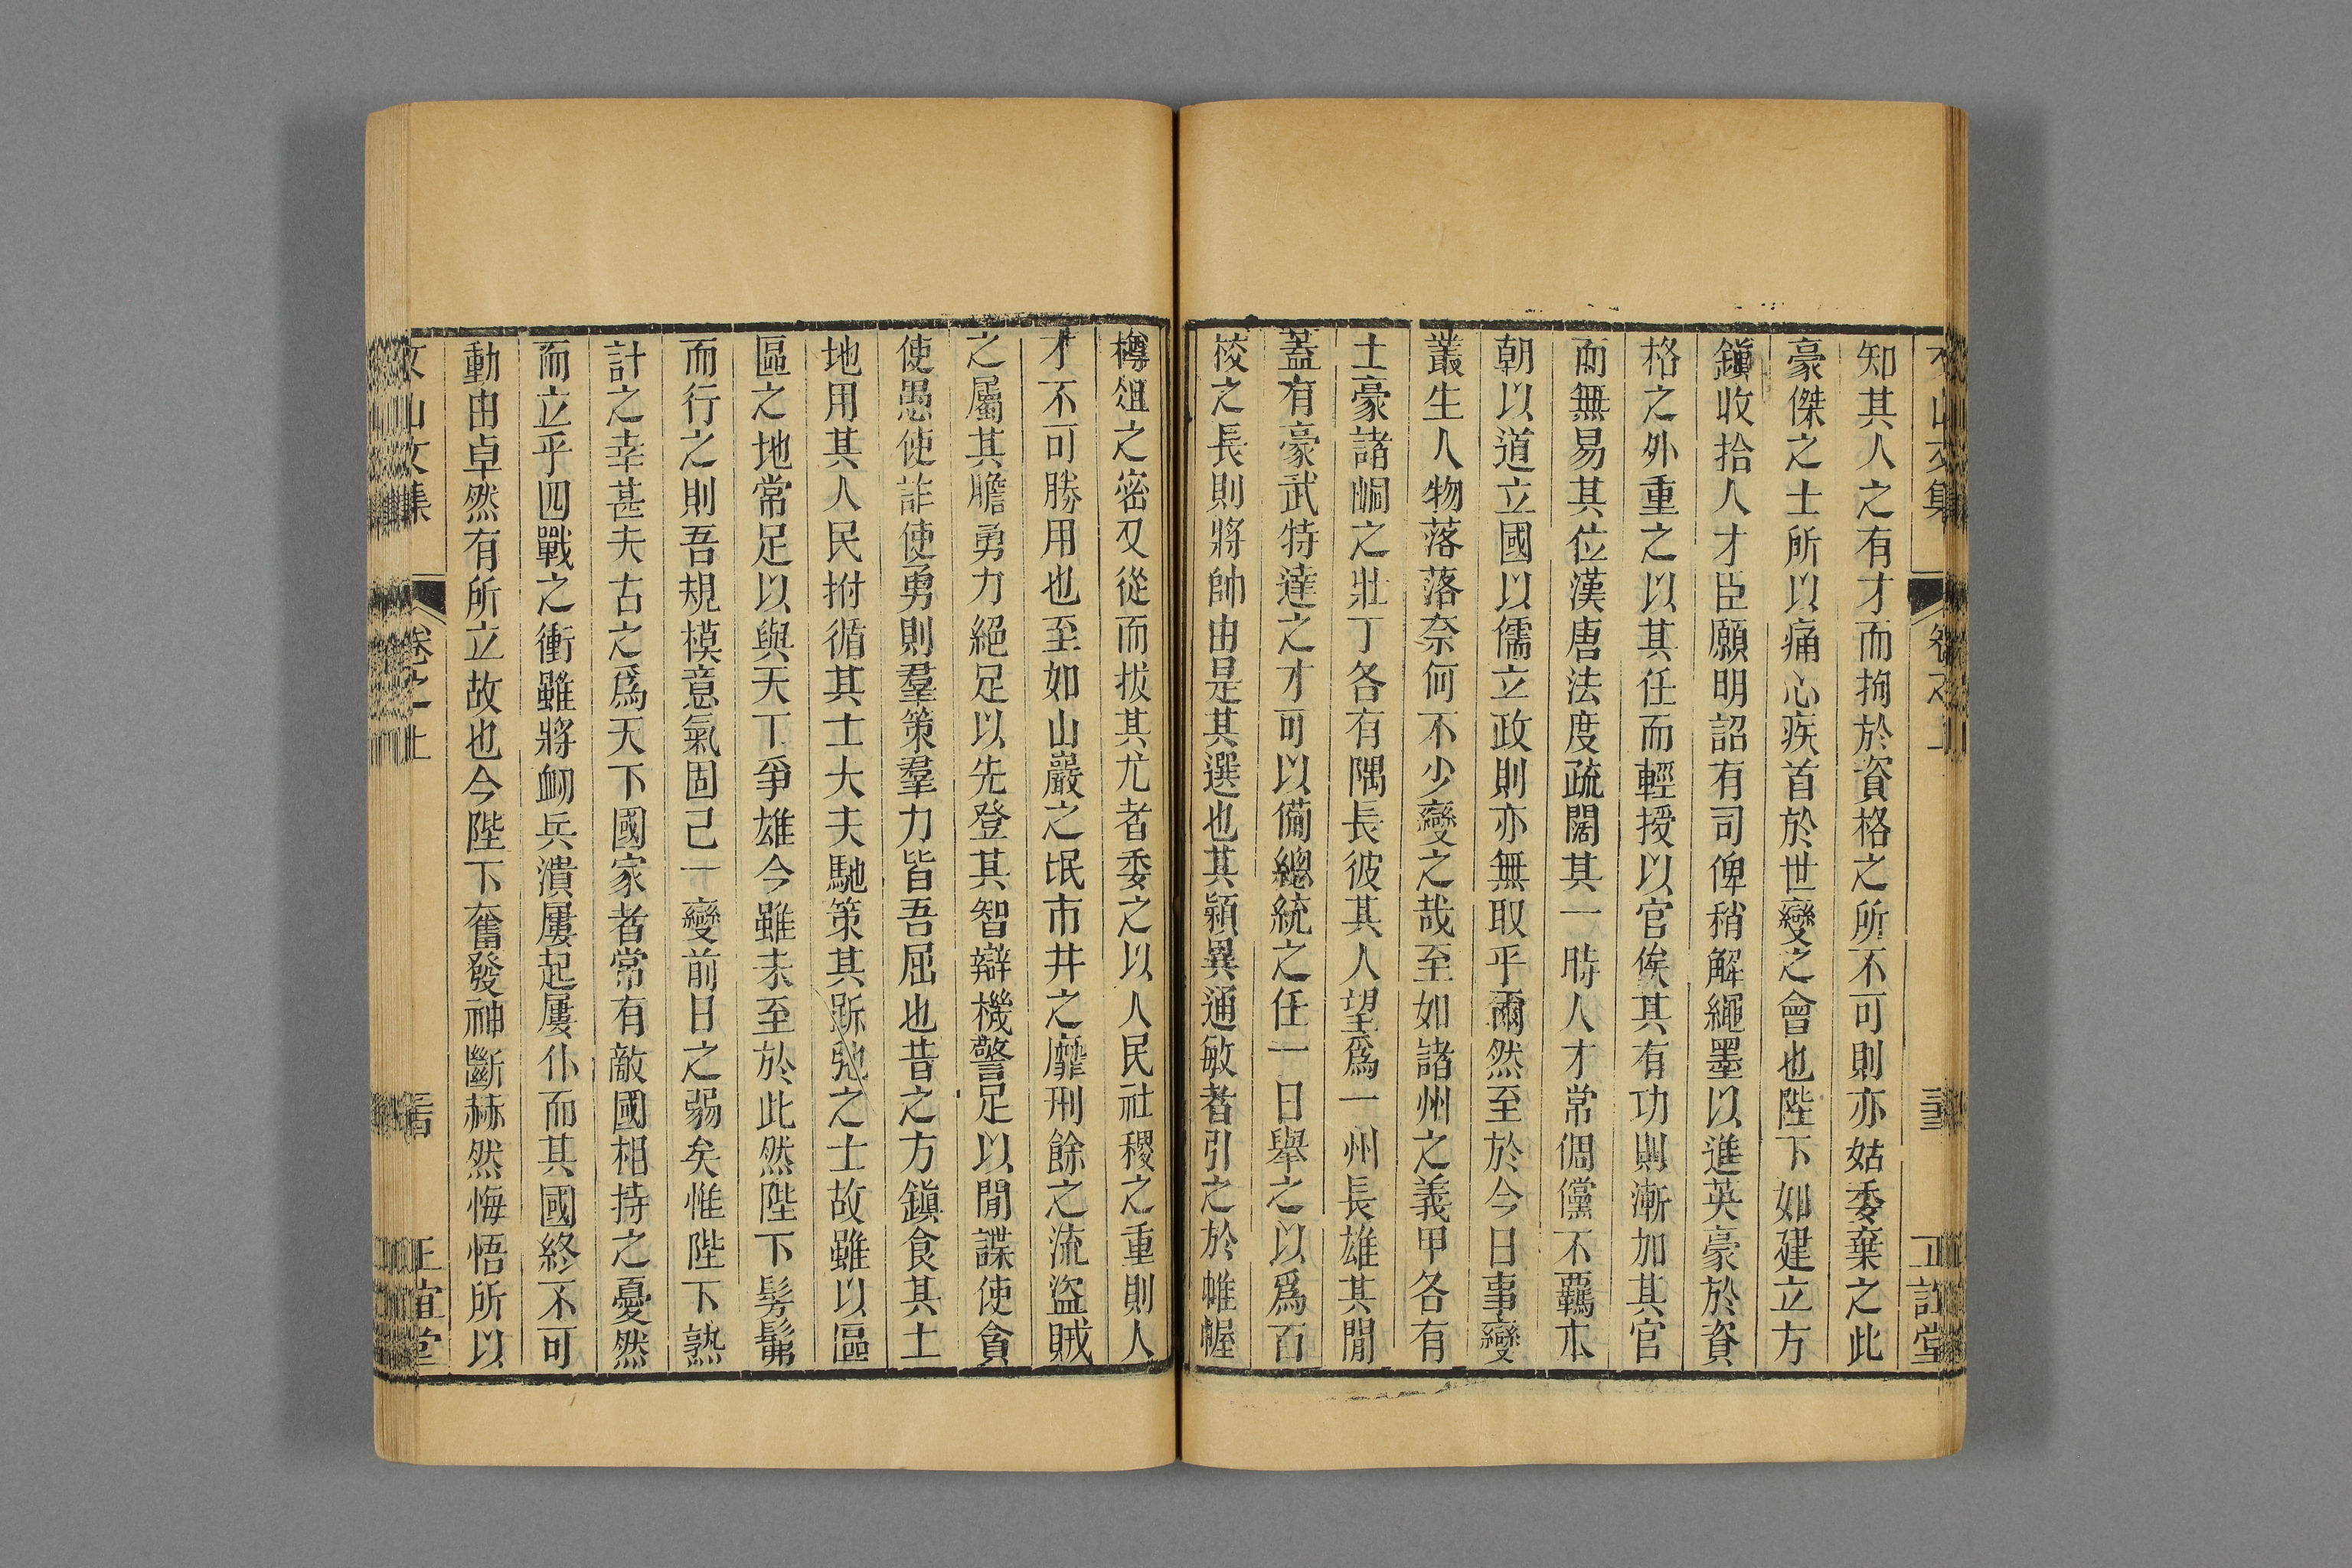 知其人之有才而拘於資格之所不可則亦姑委棄之此
豪傑之士所以痛心疾首於世變之會也陛下如建立方
鎭收拾人才臣願明詔有司俾稍解繩墨以進英豪於資
格之外重之以其任而輕授以官俟其有功則漸加其官
而無易其位漢唐法度疏闊其一時人才常倜儻不羈本
朝以道立國以儒立政則亦無取乎爾然至於今日事變
叢生人物落落奈何不少變之哉至如諸州之義甲各有
土豪諸峒之壯丁各有隅長彼其人望爲一州長雄其間
蓋有豪武特達之才可以備總統之任一日舉之以爲百
校之長則將帥由是其選也其穎異通敏者引之於帷幄
樽俎之密又從而拔其尤者委之以人民社稷之重則人
才不可勝用也至如山巖之氓市井之靡刑餘之流盜賊
之屬其膽勇力絕足以先登其智辯機警足以間諜使貪
使愚使詐使勇則羣策羣力皆吾屈也昔之方鎭食其土
地用其人民拊循其士大夫馳策其跅弛之士故雖以區
區之地常足以與天下爭雄今雖未至於此然陛下髣髴
而行之則吾規模意氣固已一變前日之弱矣惟陛下熟
計之幸甚夫古之爲天下國家者常有敵國相持之憂然
而立乎四戰之衝雖將衂兵潰屢起屢仆而其國終不可
動由卓然有所立故也今陛下奮發神斷赫然悔悟所以
文山文集
卷之上
正誼堂